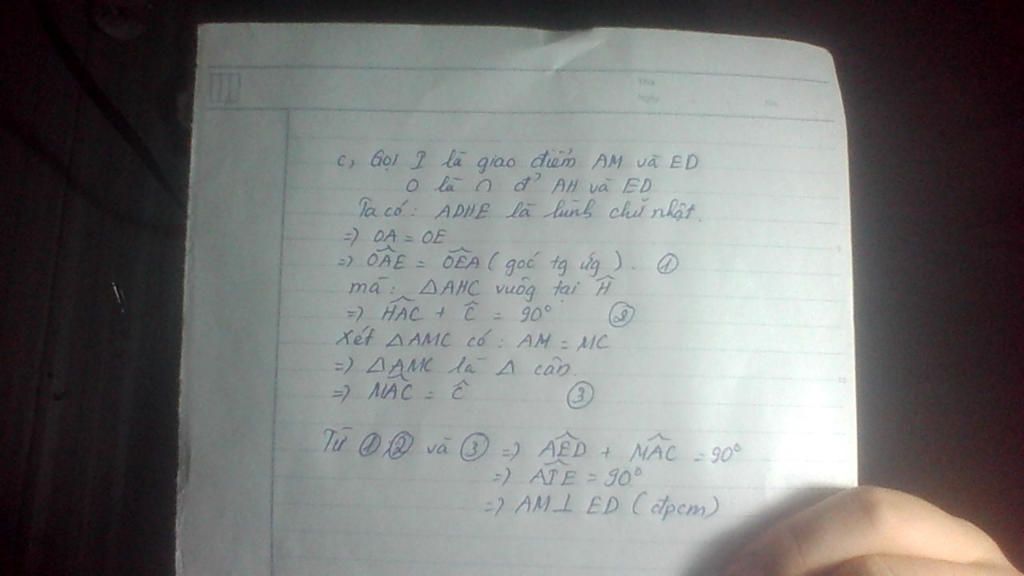 c, Gọi I là giao điểm AM và ED
O là ∩ đ' AH và ED
Ta có: ADHE là hình chữ nhật.
=> OA = OE
=> \widehat{OAE} = \widehat{OEA} ( goć tg ứg ). ①
mà: △AHC vuôg tại \hat{H}
=> \widehat{HAC} + \hat{C} = 90° ②
Xét △AMC có: AM = MC
=> △AMC là △ cân.
=> \widehat{MAC} = \hat{C} ③
Từ ① ② và ③ => \widehat{AED} + \widehat{MAC} = 90°
=> \widehat{AIE} = 90°
=> AM ⊥ ED ( đpcm)